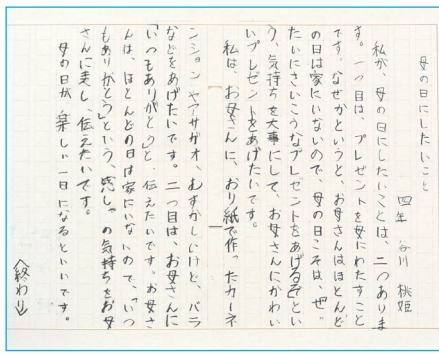 母の日にしたいこと
四年 谷川 桃姫
私が、母の日にしたいことは、二つありま
す。一つ目は、プレゼントを母にわたすこと
です。なぜかというと、お母さんはほとんど
の日は家にいないので、母の日こそは、ぜっ
たいにさいこうなプレゼントをあげるぞとい
う、気持ちを大事にして、お母さんにかわい
いプレゼントをあげたいです。
私は、お母さんに、おり紙で作ったカーネ
ーションやアサガオ、むずかしいけど、バラ
などをあげたいです。二つ目は、お母さんに
「いつもありがとう」と、伝えたいです。お母さ
んは、ほとんどの日は家にいないので、「いつ
もありがとう」という、感しゃの気持ちをお母
さんに美し、伝えたいです。
母の日が、楽しい一日になるといいです。
〈終わり〉